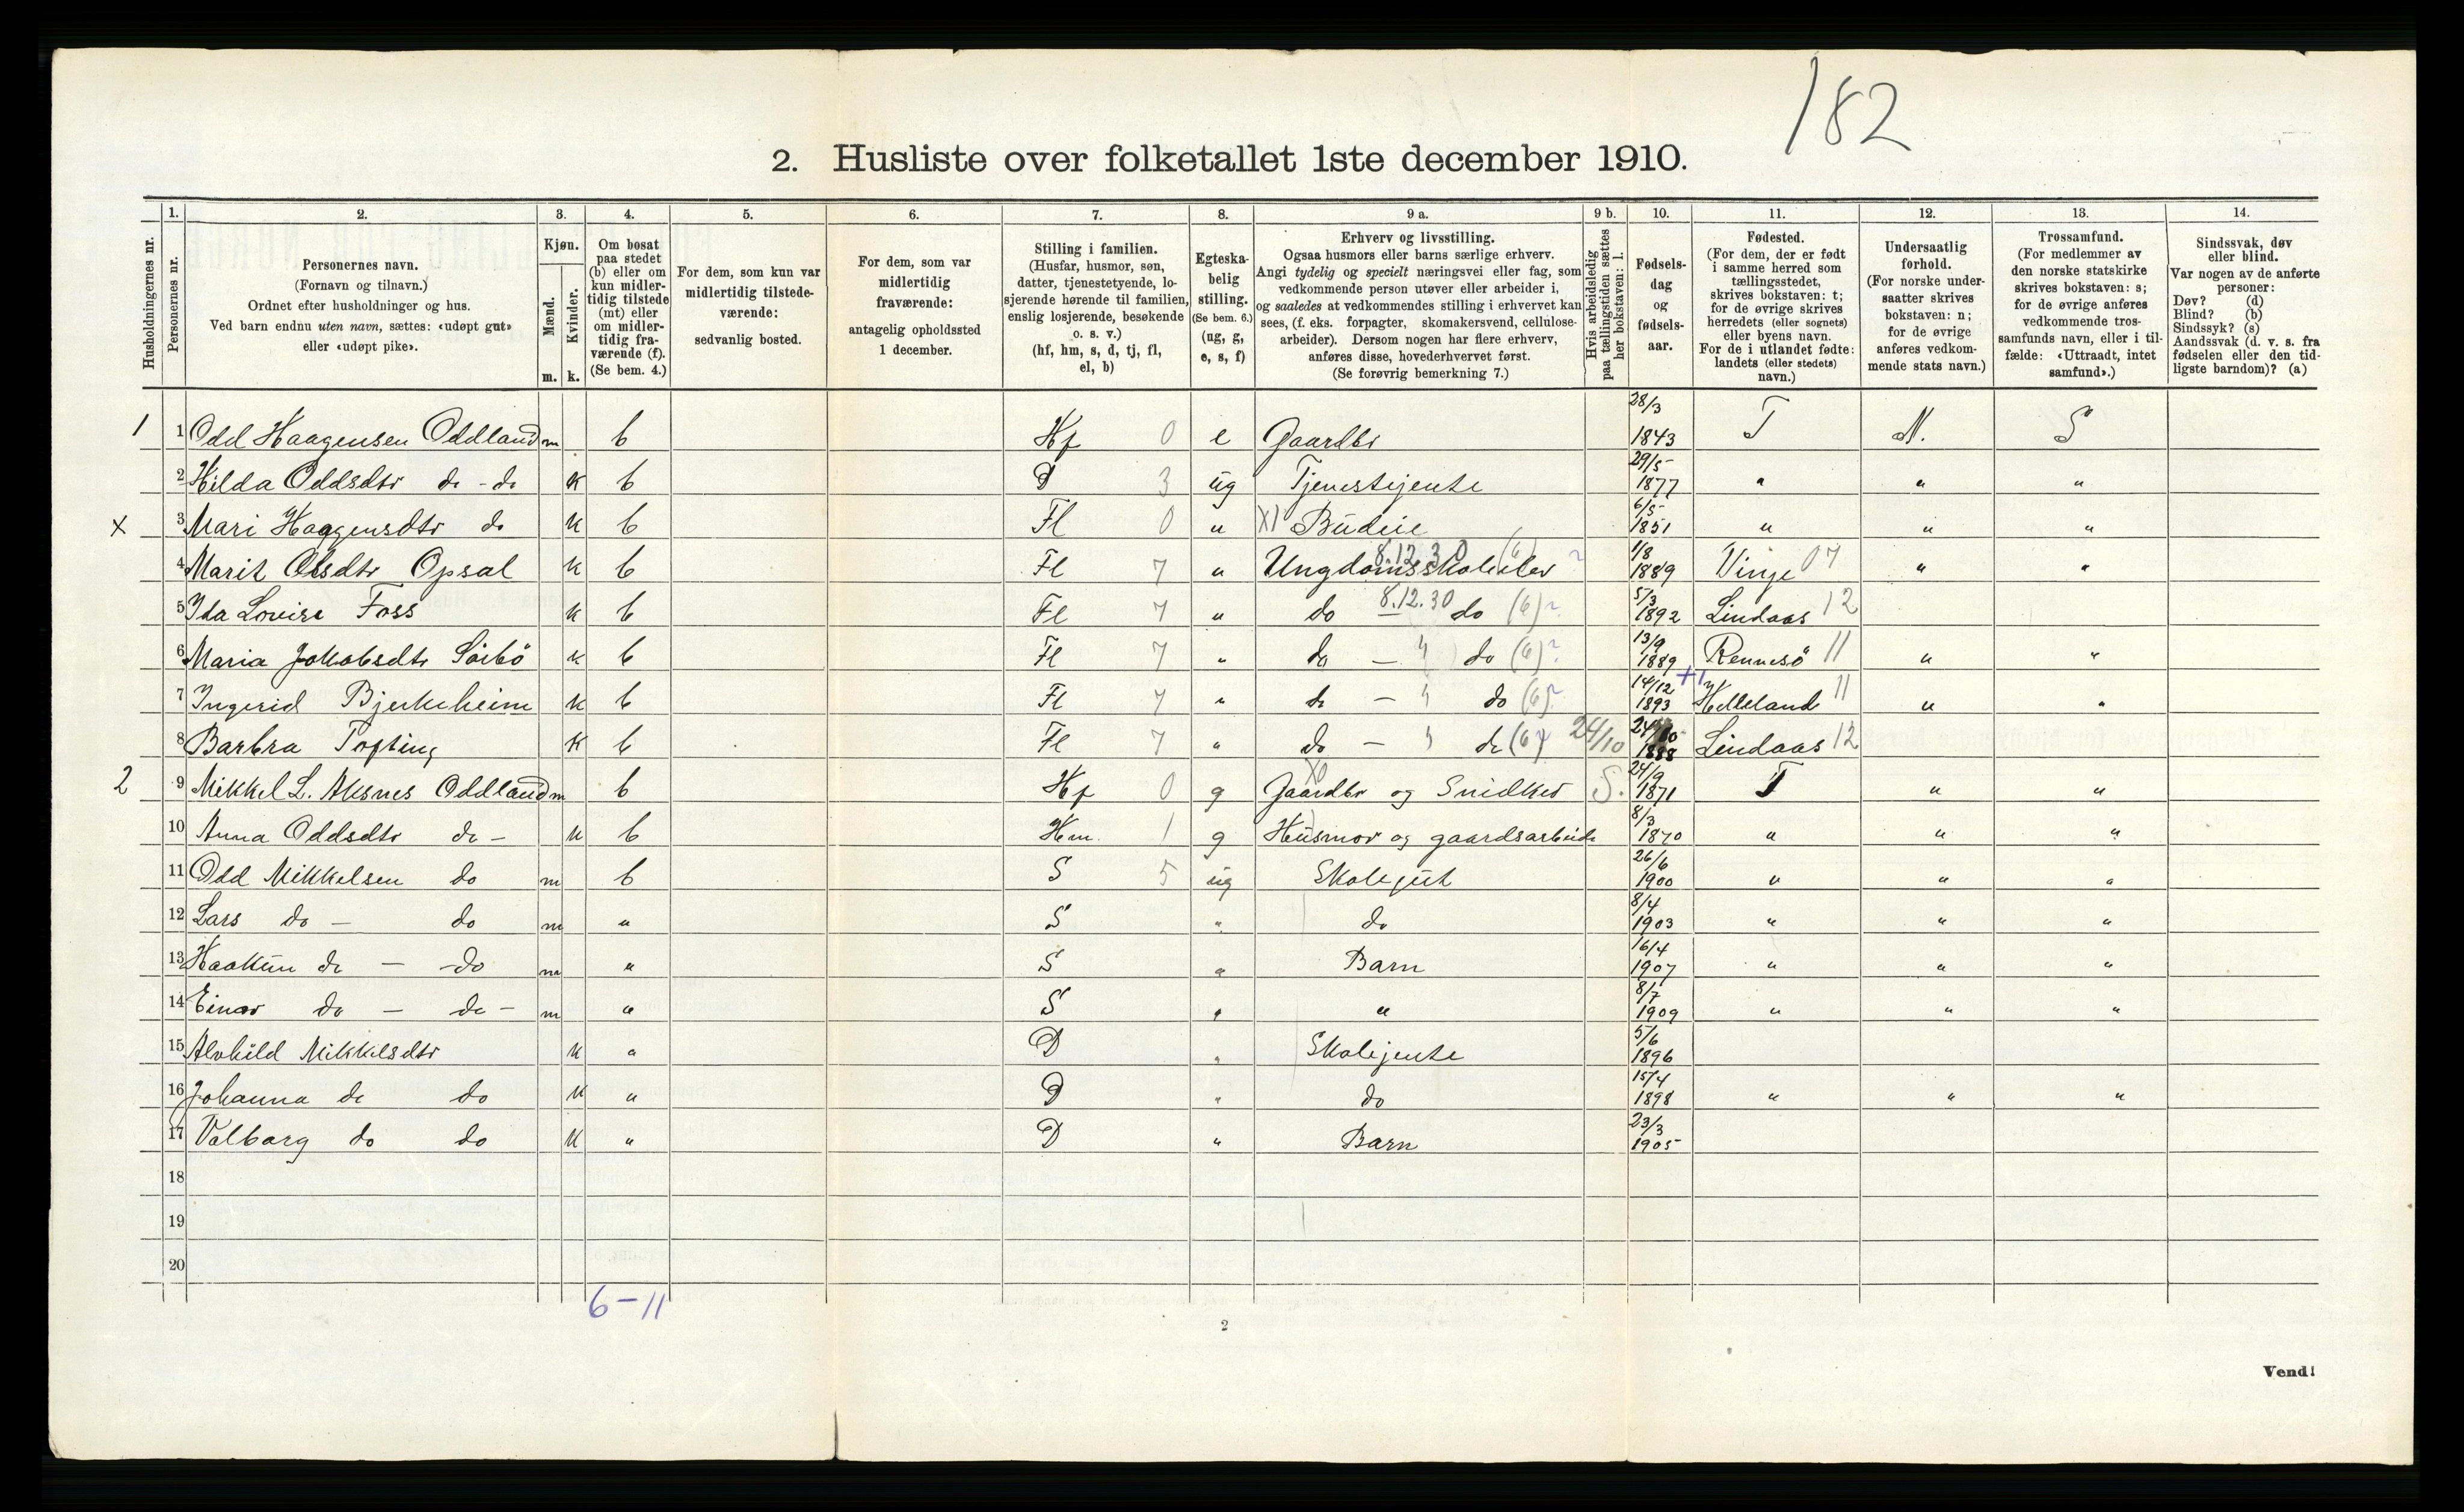 182
2. Husliste over folketallet 1ste december 1910.
Husholdningernes nr.
1. Personernes nr.
2. Personernes navn. (Fornavn og tilnavn.) Ordnet efter husholdninger og hus. Ved barn endnu uten navn, sættes: «udøpt gut» eller «udøpt pike».
3. Kjøn. Mænd. m. Kvinder. k.
4. Om bosat paa stedet (b) eller om kun midler-tidig tilstede (mt) eller om midler-tidig fra-værende (f). (Se bem. 4.)
5. For dem, som kun var midlertidig tilstede-værende: sedvanlig bosted.
6. For dem, som var midlertidig fraværende: antagelig opholdssted 1 december.
7. Stilling i familien. (Husfar, husmor, søn, datter, tjenestetyende, lo-sjerende hørende til familien, enslig losjerende, besøkende o. s. v.) (hf, hm, s, d, tj, fl, el, b)
8. Egteska-belig stilling. (Se bem. 6.) (ug, g, e, s, f)
9 a. Erhverv og livsstilling. Ogsaa husmors eller barns særlige erhverv. Angi tydelig og specielt næringsvei eller fag, som vedkommende person utøver eller arbeider i, og saaledes at vedkommendes stilling i erhvervet kan sees, (f. eks. forpagter, skomakersvend, cellulose-arbeider). Dersom nogen har flere erhverv, anføres disse, hovederhvervet først. (Se forøvrig bemerkning 7.)
9 b. Hvis arbeidsledig paa tællingstiden sættes her bokstaven: l.
10. Fødsels-dag og fødsels-aar.
11. Fødested. (For dem, der er født i samme herred som tællingsstedet, skrives bokstaven: t; for de øvrige skrives herredets (eller sognets) eller byens navn. For de i utlandet fødte: landets (eller stedets) navn.)
12. Undersaatlig forhold. (For norske under-saatter skrives bokstaven: n; for de øvrige anføres vedkom-mende stats navn.)
13. Trossamfund. (For medlemmer av den norske statskirke skrives bokstaven: s; for de øvrige anføres vedkommende tros-samfunds navn, eller i til-fælde: «Uttraadt, intet samfund».)
14. Sindssvak, døv eller blind. Var nogen av de anførte personer: Døv? (d) Blind? (b) Sindssyk? (s) Aandssvak (d. v. s. fra fødselen eller den tid-ligste barndom)? (a)
1 1 Odd Haagensen Oddland m b Hf 0 e Gaardbr 28/3 1843 T N. S
2 Hilda Oddsdtr do - do K b D 3 ug Tjenestejente 29/5 1877 " " "
x 3 Mari Haagensdtr do K b Fl 0 " X1 Budeie 6/5 1851 " " "
4 Marit Olsdtr Opsal K b Fl 7 " Ungdomsskoleelev 8.12.30 (6) ? 1/8 1889 Vinje 07 " "
5 Ida Lovise Foss K b Fl 7 " do 8.12.30 do (6) ? 5/3 1892 Lindaas 12
6 Maria Jakobsdtr Sörbö K b Fl 7 " do — " do (6) ? 13/9 1889 Rennesö 11 " "
7 Ingerid Bjerkeheim K b Fl 7 " do — " do (6) ? 14/12 1893 +1 Helleland 11 " "
8 Barbra Tofting K b Fl 7 " do — " do (6) ? 24/10 24/10 1888 Lindaas 12
2 9 Mikkel L. Aksnes Oddland m b Hf 0 g Gaardbr og Snidker X0 S. 24/9 1871 T " "
10 Anna Oddsdtr do - K b Hm. 1 g Husmor og gaardsarbeide 8/3 1870 " " "
11 Odd Mikkelsen do m b S 5 ug Skolegut 26/6 1900 " " "
12 Lars do — do m " S " do 8/4 1903 " " "
13 Haakun do — do m " S " Barn 16/4 1907 " " "
14 Einar do — do - m " S " " 8/7 1909 " " "
15 Alvhild Mikkelsdtr K " D " Skolejente 5/6 1896
16 Johanna do do K " D " do 15/4 1898 " " "
17 Valborg do do K " D " Barn 23/3 1905
18
19
20
6-11
2
Vend!